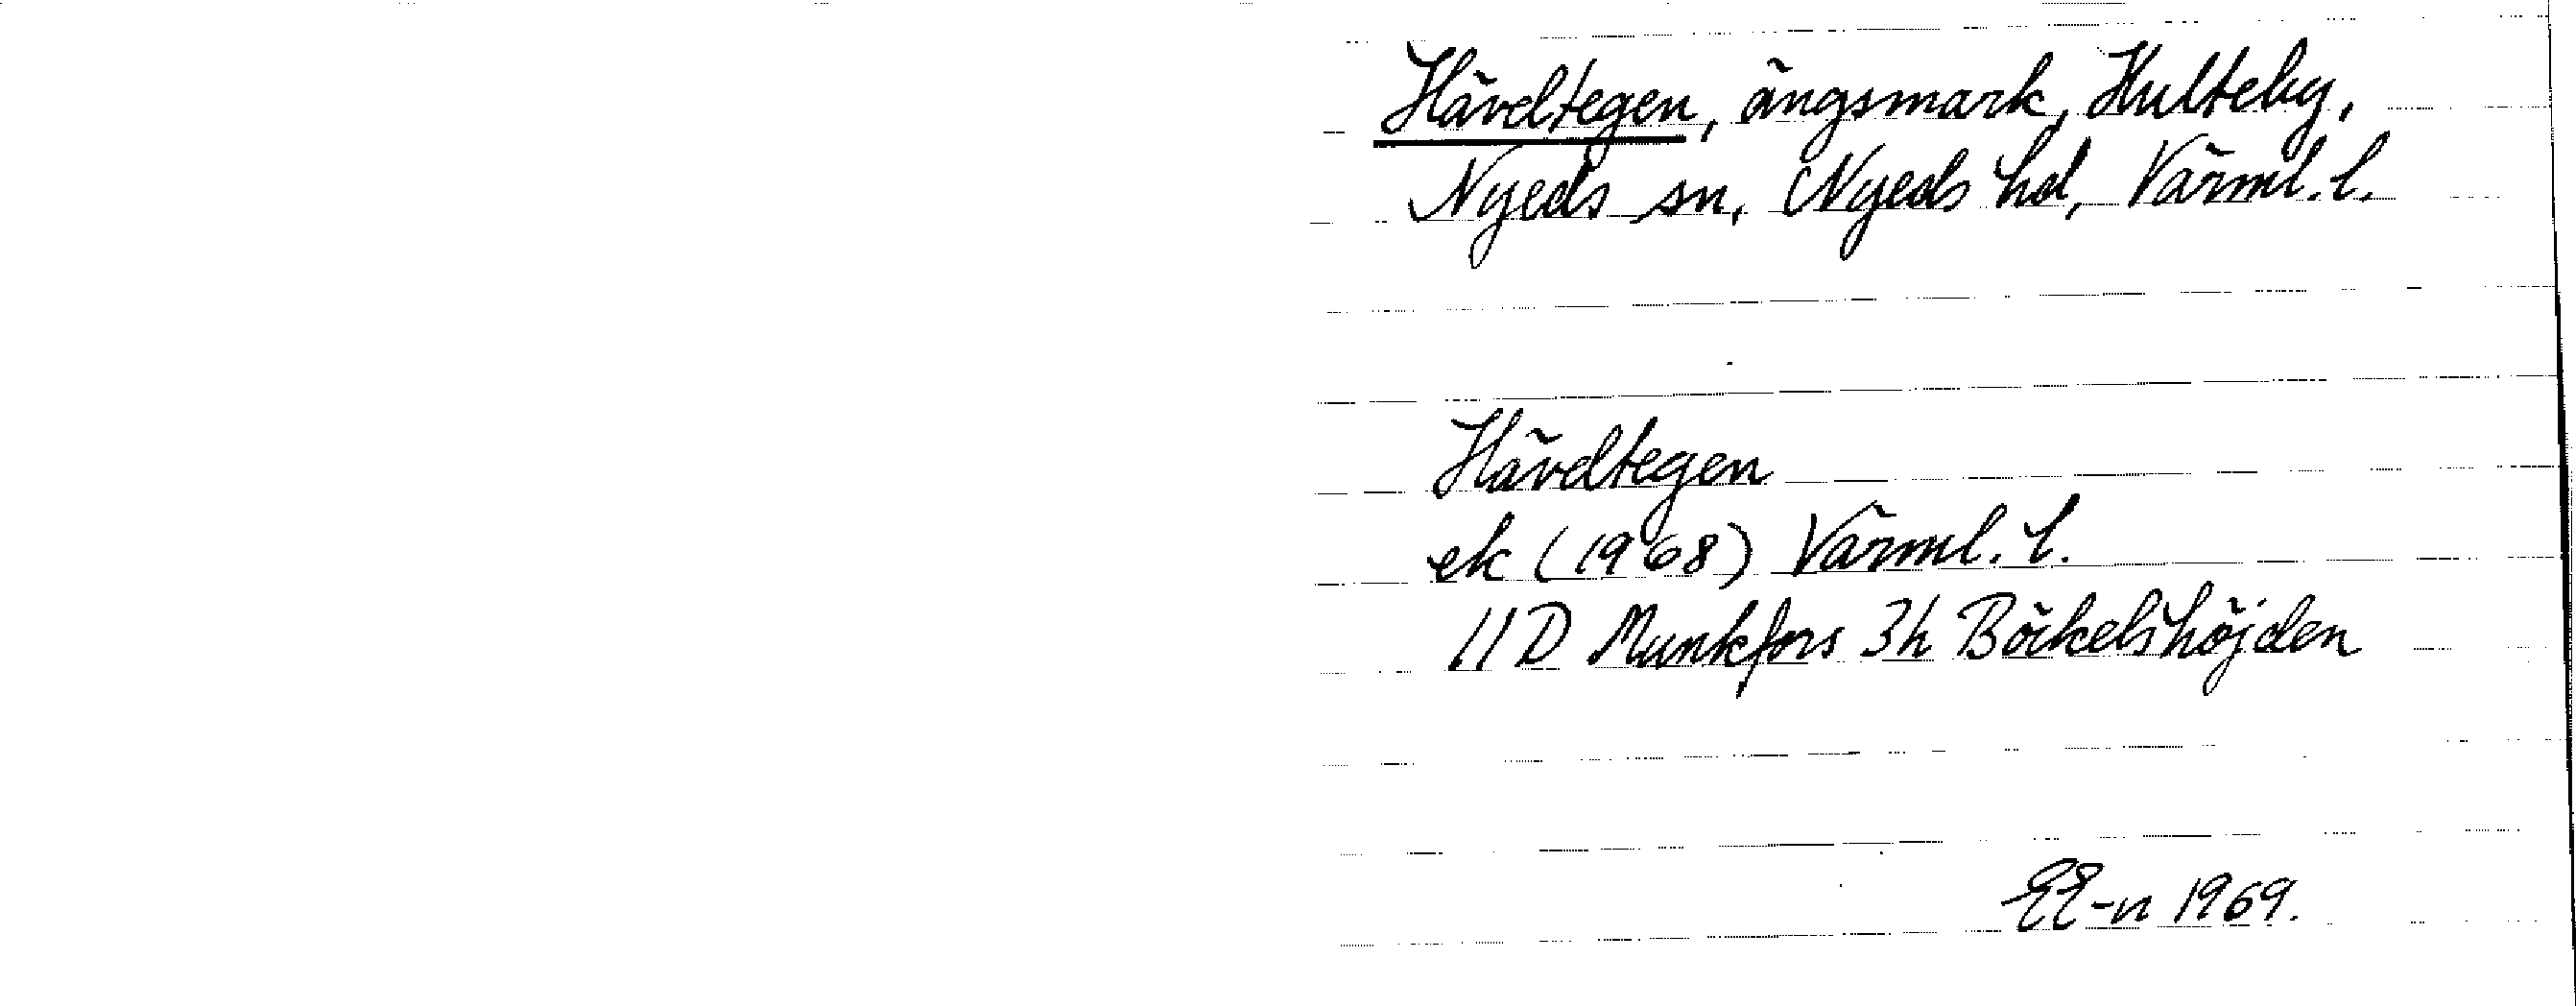 Hävdtegen, ängsmark, Hulteby,
Nyeds sn, Nyeds hd, Värml. l.
Hävdtegen
ek (1968) Värml. l.
11D Munkfors 3h Böckelshöjden
EE-n 1969.